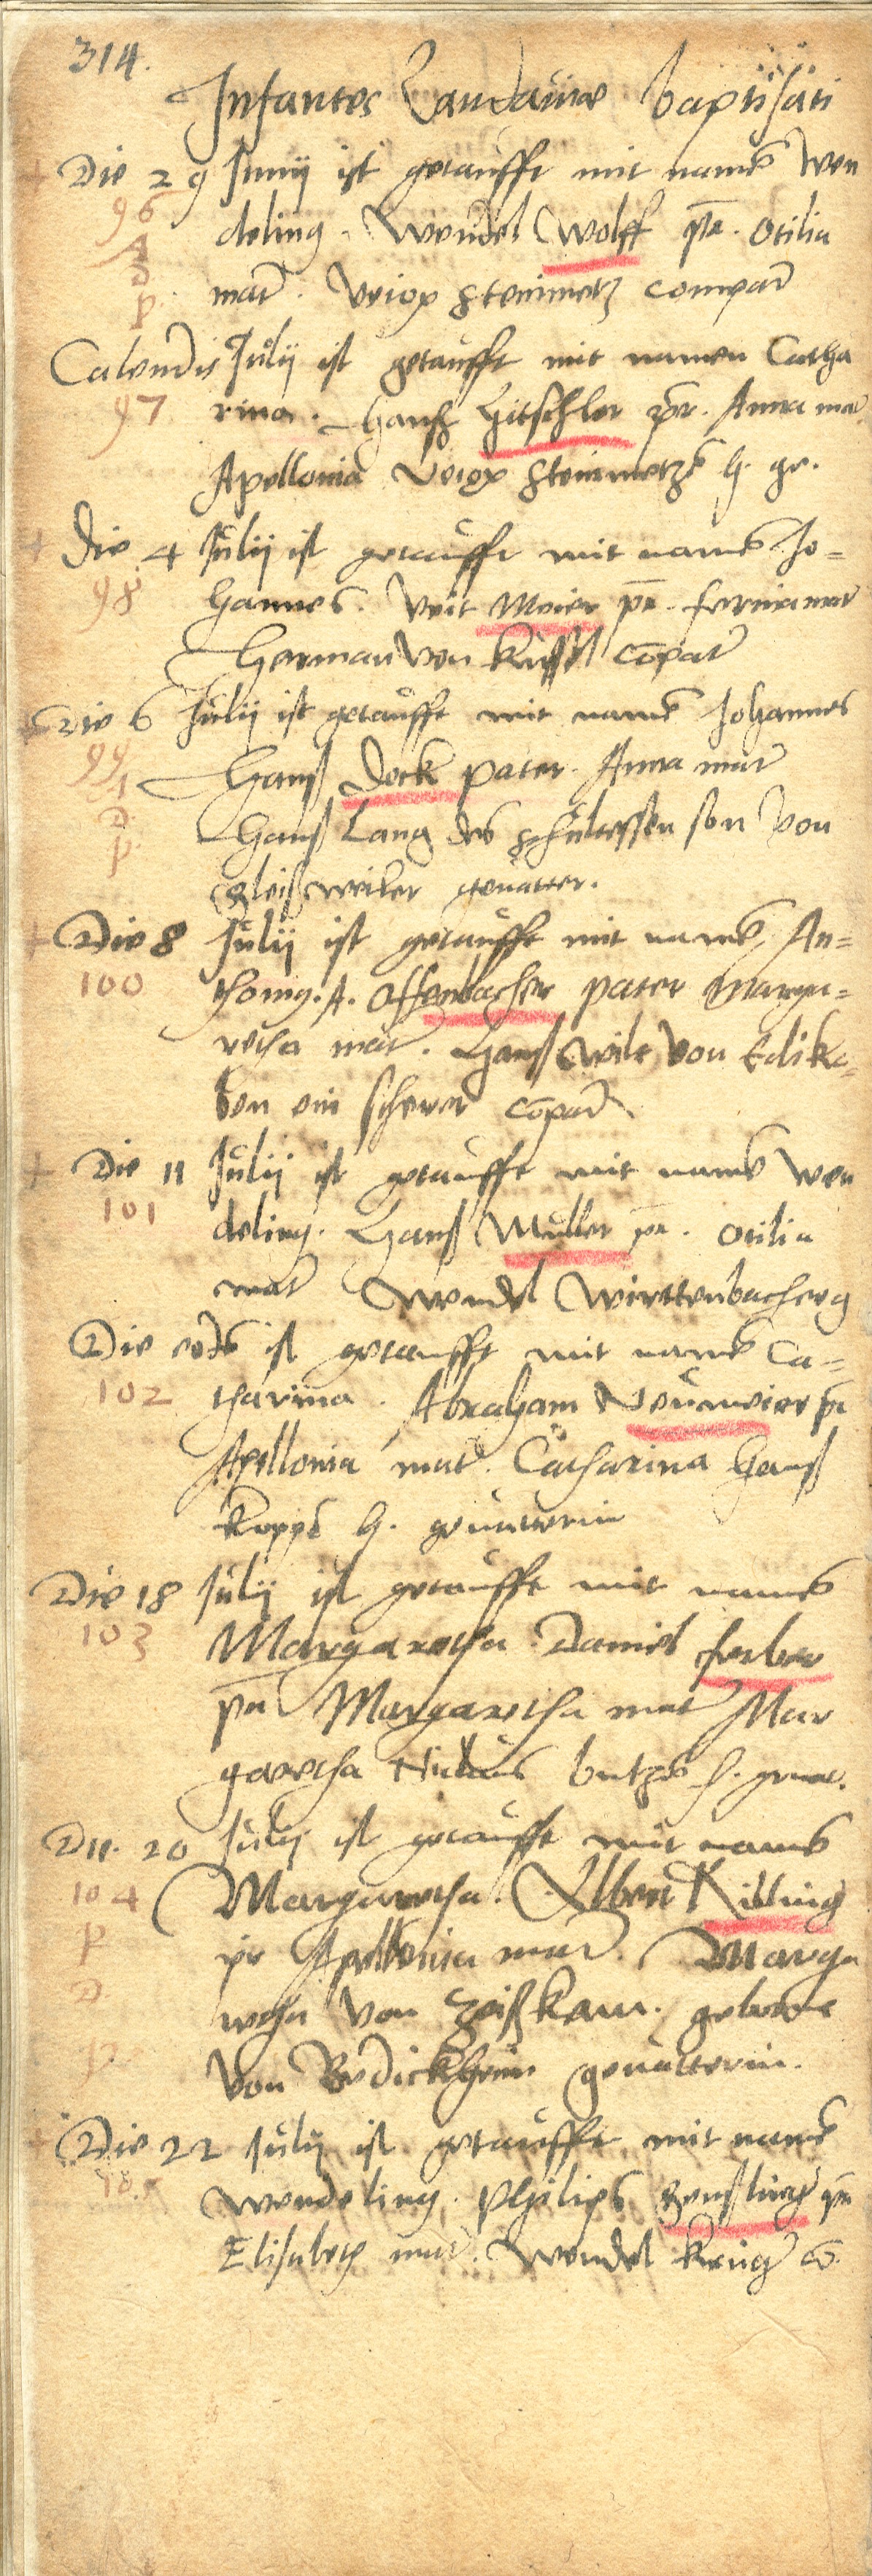 314.
Infantes Landauiae baptisati
Die 29 Junij ist getaufft mit namē Wen
96
deling. Wendel Wolff pr̄. Otilia
mat̄. Steinmetz compat̄
Calendis Julij ist getaufft mit namen Catha
97
rina. Hanß Hitschler pr̄. Anna mat̄
Apollonia Steinmetzē h. ge.
Die 4 Julij ist getaufft mit namē Jo=
98
hannes. Veit Meier pr̄. mat̄
Herman von cōpat̄
Die 6 Julij ist getaufft mit namē Johannes
99
Hanß Dock pater. Anna mat̄
Hanß Lang des schultessen son von
Gleißweiler geuatter.
Die 8 Julij ist getaufft mit namē An=
100
thonig. A. Offenbacher pater Marga=
retha mat̄. Hanß Wilt von Edik=
ben ein scherer cōpat̄
Die 11 Julij ist getaufft mit namē Wen
101
deling. Hanß Müller pr̄. Otilia
mat̄ Wendel Wirttenbacherg
Die eodē ist getaufft mit namē Ca=
102
tharina. Abraham Neümeier pr̄
Apollonia mat̄. Catharina Hanß
Koppē h. geuatterin
Die 18 Julij ist getaufft mit namē
103
Margaretha. Daniel ferber
pr̄ Margaretha mat̄ Mar
garetha Niclaus butzē h. geuat.
Die 20 Julij ist getaufft mit namē
104
Margaretha. Killing
pr Apollonia mat̄. Marga
retha von Zeißkam. geborne
von geuatterin.
Die 22 Julij ist getaufft mit namē
105
Wendeling. Philips pr̄
Elisabeth mat̄. Wendel Krüger cō.